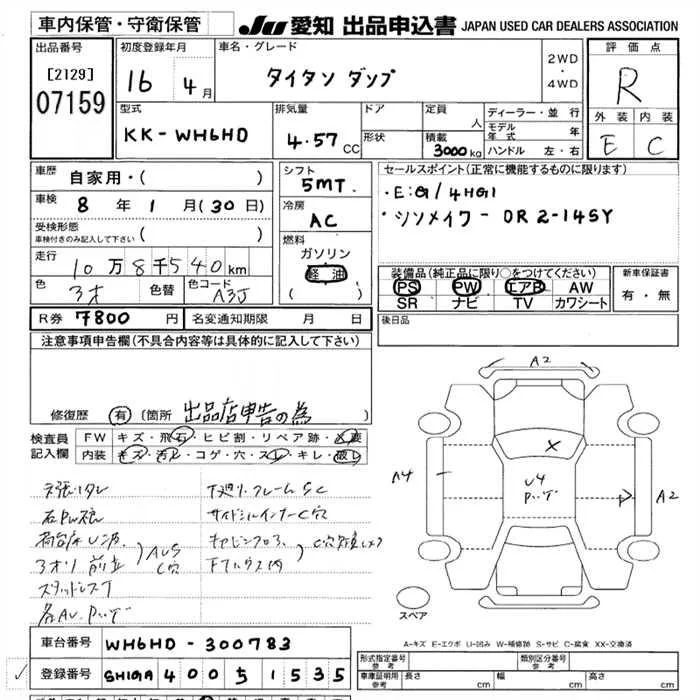 車内保管・守衛保管
JU 愛知 出品申込書 JAPAN USED CAR DEALERS ASSOCIATION
出品番号
[2129]
07159
初度登録年月
16 4月
車名・グレード
タイタン ダンプ
2WD
・
4WD
評価点
R
外装 内装
E C
型式
KK-WH6HD
排気量
4.57CC
ドア
形状
定員
人
積載
3000kg
ディーラー・並行
モデル年式 年
ハンドル 左・右
車歴
自家用・( )
車検
8年1月(30日)
受検形態
車検付きのみ記入して下さい ( )
走行
10万8千540km
色
3オ
色替
色コード
A3J
シフト
5MT
冷房
AC
燃料
ガソリン
軽油
( )
セールスポイント(正常に機能するものに限ります)
・E:G/4HG1
・シンメイワ-DR2-14SY
装備品(純正品に限り○をつけてください)
PS PW エアB AW
SR ナビ TV カワシート
新車保証書
有・無
R券 7800円 名変通知期限 月 日
後日品
注意事項申告欄(不具合内容等は具体的に記入して下さい)
修復歴 有 (箇所 出品店申告の為 )
検査員
記入欄
FW キズ・飛石・ヒビ割・リペア跡・
内装 キズ・汚レ・コゲ・穴・スレ・キレ・破レ
下廻りフレームSC
サイドシルインナーC穴
C穴
A2
A4
X
U4
A2
スペア
A-キズ E-エクボ U-凹み W-補修跡 S-サビ C-腐食 XX-交換済
車台番号 WH6HD-300783
登録番号 SHIGA 400 ち 1535
型式指定番号
参考
類別区分番号
参考
車庫証明用
参考
長さ cm 幅 cm 高さ cm